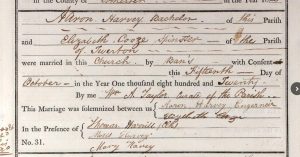 in the County of Somerset
Aaron Harvey Bachelor of this Parish
and Elizabeth Cooze Spinster of the Parish
of Twerton
were married in this Church by Bans with Consent of
this Fifteenth Day of
October in the Year One thousand eight hundred and Twenty
By me Wm A. Taylor Curate of the Parish
This Marriage was solemnized between us Aaron Harvey
Elizabeth Cooze
In the Presence of Thomas
Harvey
No. 31. Mary